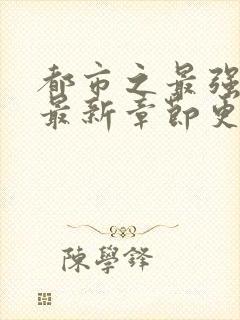 都市之最强
最新章节更
陳學鋒